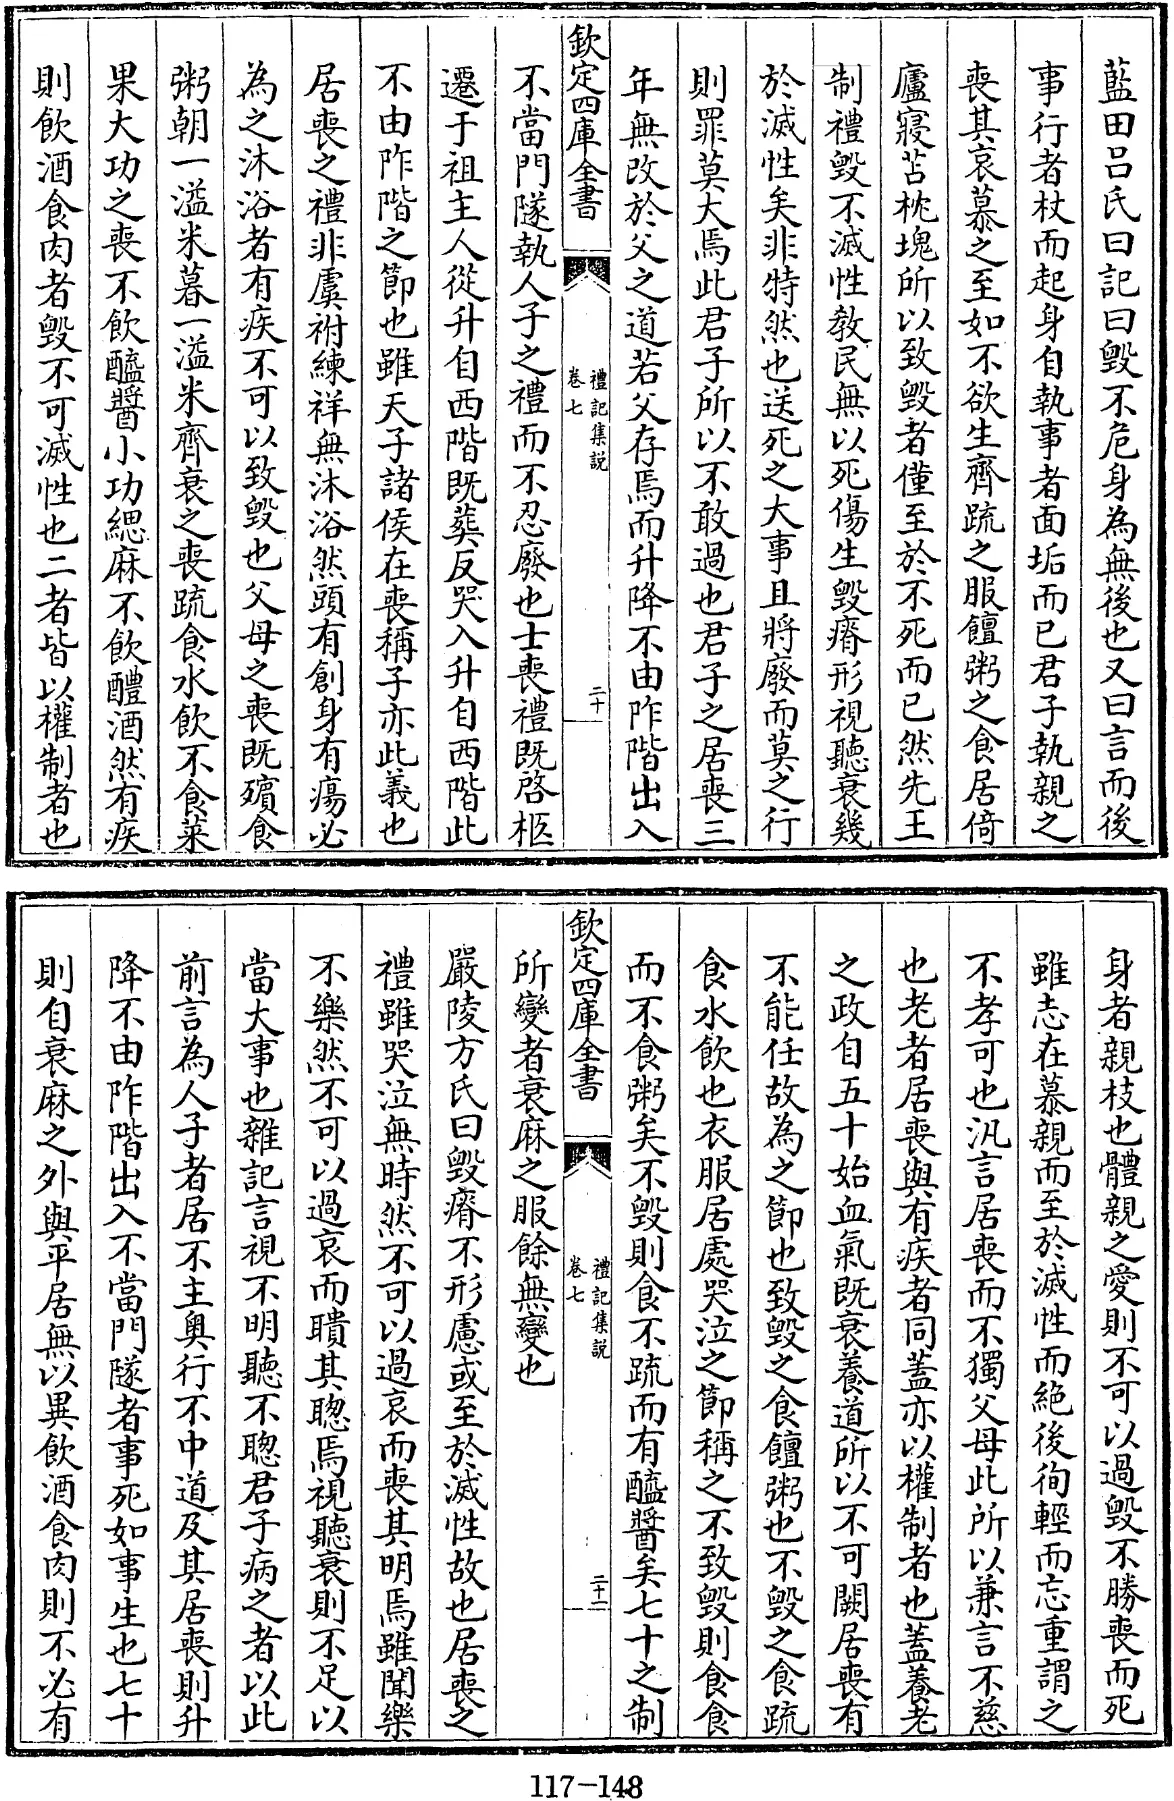 藍田呂氏曰記曰毀不危身為無後也又曰言而後
事行者杖而起身自執事者面垢而已君子執親之
喪其哀慕之至如不欲生齊疏之服饘粥之食居倚
廬寢苫枕塊所以致毀者僅至於不死而已然先王
制禮毀不滅性教民無以死傷生毀瘠形視聽衰幾
於滅性矣非特然也送死之大事且將廢而莫之行
則罪莫大焉此君子所以不敢過也君子之居喪三
年無改於父之道若父存焉而升降不由阼階出入
欽定四庫全書
禮記集説
卷七
二十
不當門隧執人子之禮而不忍廢也士喪禮既啓柩
遷于祖主人從升自西階既葬反哭入升自西階此
不由阼階之節也雖天子諸侯在喪稱子亦此義也
居喪之禮非虞祔練祥無沐浴然頭有創身有瘍必
為之沐浴者有疾不可以致毀也父母之喪既殯食
粥朝一溢米暮一溢米齊衰之喪疏食水飲不食菜
果大功之喪不飲醯醬小功緦麻不飲醴酒然有疾
則飲酒食肉者毀不可滅性也二者皆以權制者也
身者親枝也體親之愛則不可以過毀不勝喪而死
雖志在慕親而至於滅性而絶後徇輕而忘重謂之
不孝可也汎言居喪而不獨父母此所以兼言不慈
也老者居喪與有疾者同蓋亦以權制者也蓋養老
之政自五十始血氣既衰養道所以不可闕居喪有
不能任故為之節也致毀之食饘粥也不毀之食疏
食水飲也衣服居處哭泣之節稱之不致毀則食食
而不食粥矣不毀則食不疏而有醯醬矣七十之制
欽定四庫全書
禮記集説
卷七
二十一
所變者衰麻之服餘無變也
嚴陵方氏曰毀瘠不形慮或至於滅性故也居喪之
禮雖哭泣無時然不可以過哀而喪其明焉雖聞樂
不樂然不可以過哀而聵其聰焉視聽衰則不足以
當大事也雜記言視不明聽不聰君子病之者以此
前言為人子者居不主奥行不中道及其居喪則升
降不由阼階出入不當門隧者事死如事生也七十
則自衰麻之外與平居無以異飲酒食肉則不必有
117-148